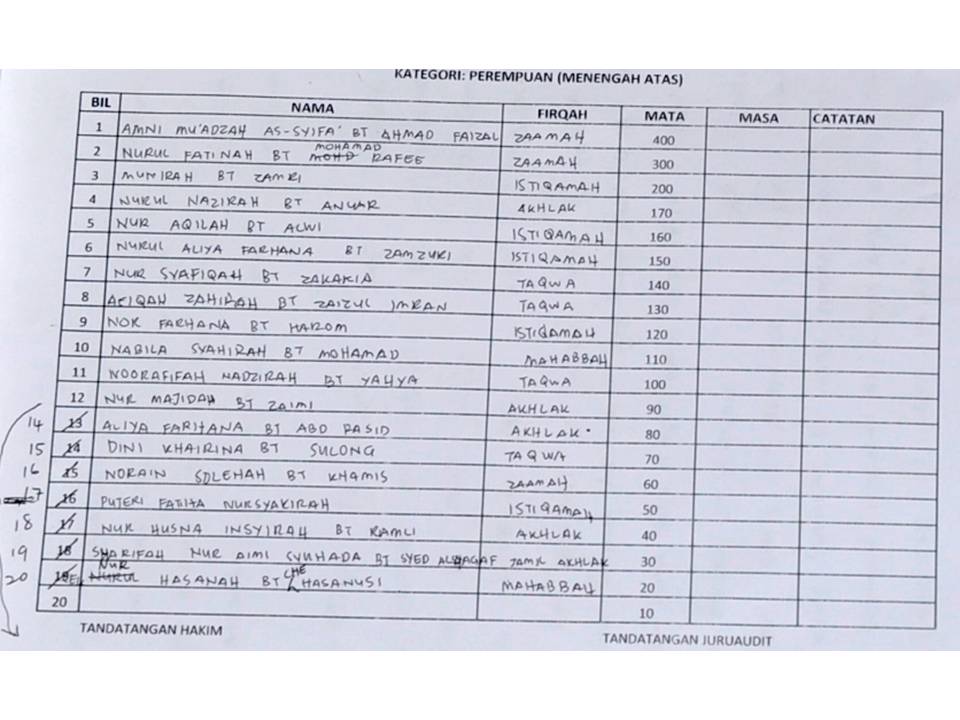 KATEGORI: PEREMPUAN (MENENGAH ATAS)
BIL NAMA FIRQAH MATA MASA CATATAN
1 AMNI MU'ADZAH AS-SYIFA' BT AHMAD FAIZAL ZAAMAH 400
2 NURUL FATINAH BT MOHD MOHAMAD RAFEE ZAAMAH 300
3 MUNIRAH BT ZAMRI ISTIQAMAH 200
4 NURUL NAZIRAH BT ANUAR AKHLAK 170
5 NUR AQILAH BT ALWI ISTIQAMAH 160
6 NURUL ALIYA FARHANA BT ZAMZURI ISTIQAMAH 150
7 NUR SYAFIQAH BT ZAKARIA TAQWA 140
8 AFIQAH ZAHIRAH BT ZAIZUL IMRAN TAQWA 130
9 NOR FARHANA BT HAROM ISTIQAMAH 120
10 NABILA SYAHIRAH BT MOHAMAD MAHABBAH 110
11 NOORAFIFAH NADZIRAH BT YAHYA TAQWA 100
12 NUR MAJIDAH BT ZAIMI AKHLAK 90
14 13 ALIYA FARHANA BT ABD RASID AKHLAK 80
15 14 DINI KHAIRINA BT SULONG TAQWA 70
16 15 NORAIN SOLEHAH BT KHAMIS ZAAMAH 60
17 16 PUTERI FATIHA NURSYAKIRAH ISTIQAMAH 50
18 17 NUR HUSNA INSYIRAH BT RAMLI AKHLAK 40
19 18 SHARIFAH NUR AIMI SYUHADA BT SYED AKHLAK 30
20 19 NURUL NUR HASANAH BT CHE HASANUSI MAHABBAH 20
20 10
TANDATANGAN HAKIM TANDATANGAN JURUAUDIT